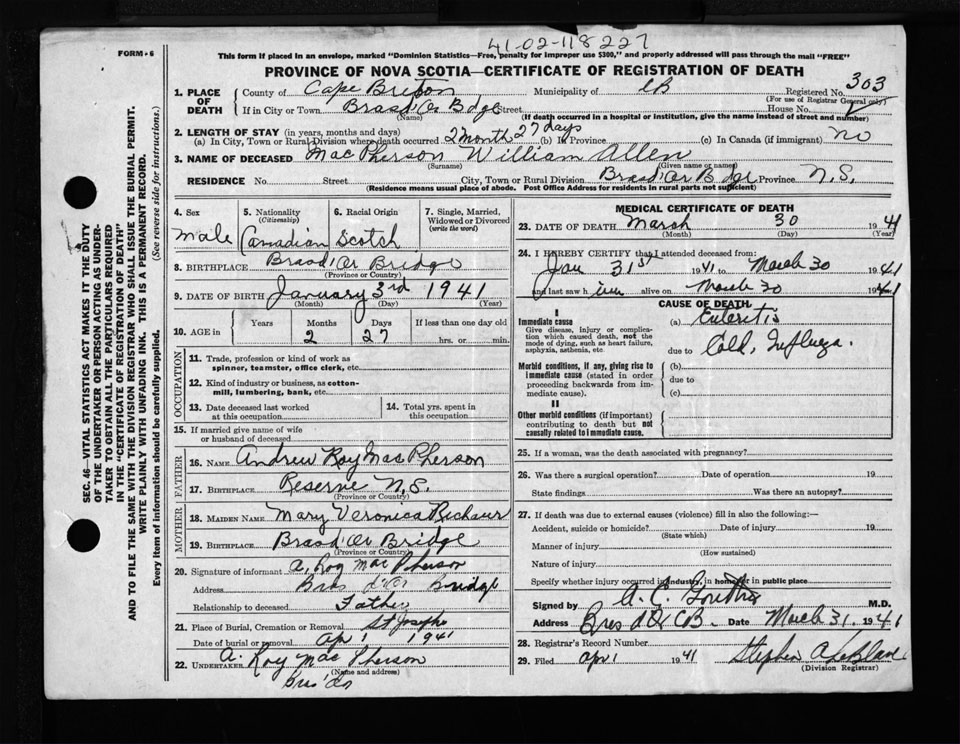 41-02-118227
FORM-6
This form if placed in an envelope, marked "Dominion Statistics—Free, penalty for improper use $300," and properly addressed will pass through the mail "FREE"
PROVINCE OF NOVA SCOTIA—CERTIFICATE OF REGISTRATION OF DEATH
SEC. 46—VITAL STATISTICS ACT MAKES IT THE DUTY
OF THE UNDERTAKER OR PERSON ACTING AS UNDER-
TAKER TO OBTAIN ALL THE PARTICULARS REQUIRED
IN THE "CERTIFICATE OF REGISTRATION OF DEATH"
AND TO FILE THE SAME WITH THE DIVISION REGISTRAR WHO SHALL ISSUE THE BURIAL PERMIT.
WRITE PLAINLY WITH UNFADING INK. THIS IS A PERMANENT RECORD.
Every item of information should be carefully supplied. (See reverse side for instructions.)
1. PLACE OF DEATH
County of Cape Breton Municipality of CB Registered No. 303
(For use of Registrar General only)
If in City or Town Brasd'Or Bdge Street House No.
(Name) (If death occurred in a hospital or institution, give the name instead of street and number)
2. LENGTH OF STAY (in years, months and days)
(a) In City, Town or Rural Division where death occurred 2 month 27 days (b) In Province (c) In Canada (if immigrant) no
3. NAME OF DECEASED MacPherson William Allen
(Surname) (Given name or names)
RESIDENCE No. Street City, Town or Rural Division Brasd'Or Bdge Province N.S.
(Residence means usual place of abode. Post Office Address for residents in rural parts not sufficient)
4. Sex 5. Nationality (Citizenship) 6. Racial Origin 7. Single, Married, Widowed or Divorced (write the word)
male Canadian Scotch
8. BIRTHPLACE Brasd'Or Bridge
(Province or Country)
9. DATE OF BIRTH January 3rd 1941
(Month) (Day) (Year)
10. AGE in Years Months Days If less than one day old
2 27 hrs. or min.
OCCUPATION
11. Trade, profession or kind of work as
spinner, teamster, office clerk, etc.
12. Kind of industry or business, as cotton-
mill, lumbering, bank, etc.
13. Date deceased last worked
at this occupation
14. Total yrs. spent in
this occupation
15. If married give name of wife
or husband of deceased
FATHER
16. NAME Andrew Roy MacPherson
17. BIRTHPLACE Reserve N.S.
(Province or Country)
MOTHER
18. MAIDEN NAME Mary Veronica
19. BIRTHPLACE Brasd'Or Bridge
(Province or Country)
20. Signature of informant A. Roy MacPherson
Address Bras d'Or Bridge
Relationship to deceased Father
21. Place of Burial, Cremation or Removal St Josephs
Date of burial or removal Apr 1 1941
22. UNDERTAKER A. Roy MacPherson
(Name and address)
Bras'dOr
MEDICAL CERTIFICATE OF DEATH
23. DATE OF DEATH March 30 1941
(Month) (Day) (Year)
24. I HEREBY CERTIFY that I attended deceased from:
Jan 31st 1941 to March 30 1941
and last saw him alive on March 30 1941
CAUSE OF DEATH
I
Immediate cause
Give disease, injury or complica-
tion which caused death, not the
mode of dying, such as heart failure,
asphyxia, asthenia, etc.
(a) Enteritis
due to Cold, Influeza.
Morbid conditions, if any, giving rise to
immediate cause (stated in order
proceeding backwards from im-
mediate cause).
(b)
due to
(c)
II
Other morbid conditions (if important)
contributing to death but not
causally related to immediate cause.
25. If a woman, was the death associated with pregnancy?
26. Was there a surgical operation? Date of operation 19
State findings Was there an autopsy?
27. If death was due to external causes (violence) fill in also the following:—
Accident, suicide or homicide? Date of injury 19
(State which)
Manner of injury
(How sustained)
Nature of injury
Specify whether injury occurred in industry, in home or in public place
Signed by A. C. M.D.
Address Bras d'Or C.B. Date March 31. 1941
28. Registrar's Record Number
29. Filed Apr 1 1941 Stephen A LeBlanc
(Division Registrar)